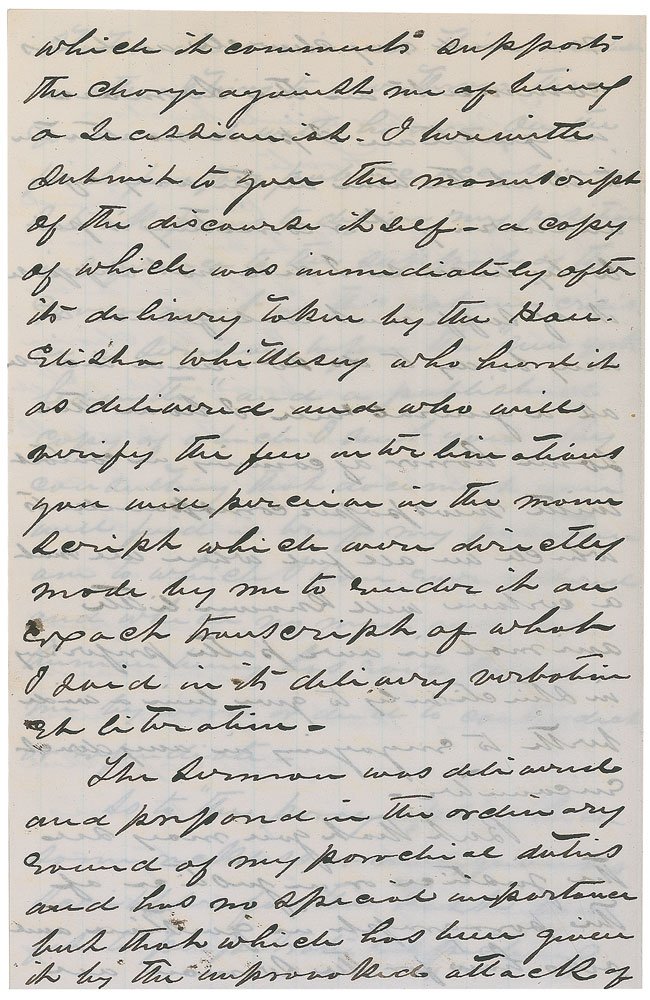 which it comments supports
the charge against me of being
a Secessionist. I herewith
submit to you the manuscript
of the discourse itself - a copy
of which was immediately after
its delivery taken by the Hon.
Elisha Whittlesey who heard it
as delivered and who will
verify the few interlineations
you will perceive in the manu
script which were directly
made by me to render it an
exact transcript of what
I said in its delivery verbatim
et literatim -
The Sermon was delivered
and prepared in the ordinary
round of my parochial duties
and has no special importance
but that which has been given
it by the unprovoked attack of